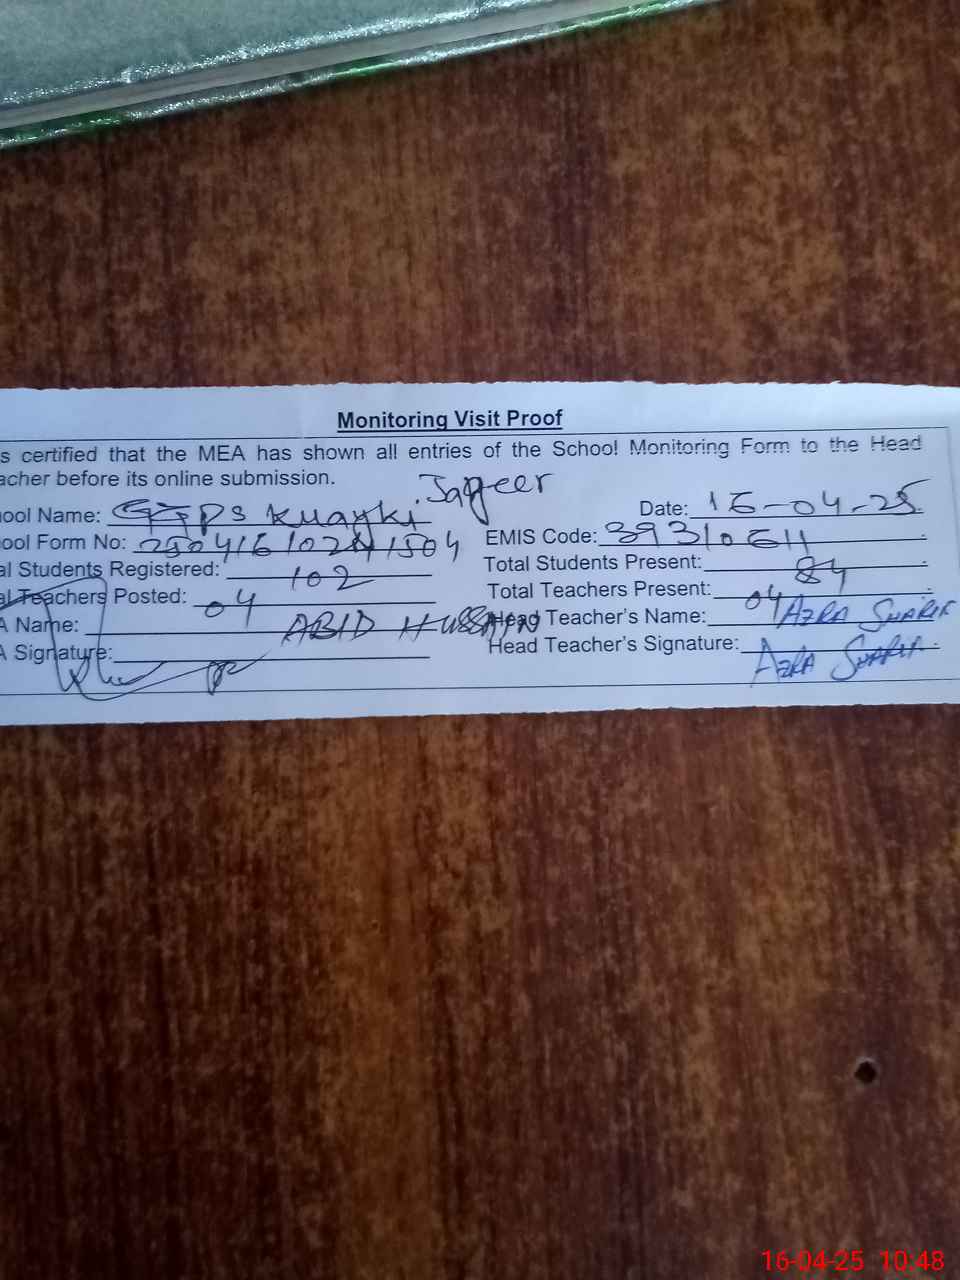 Monitoring Visit Proof
s certified that the MEA has shown all entries of the School Monitoring Form to the Head
acher before its online submission.
ool Name: GGPS Khayki Jageer Date: 16-04-25
ool Form No: EMIS Code: 39310611
al Students Registered: 102 Total Students Present: 84
al Teachers Posted: 04 Total Teachers Present: 04
A Name: ABID HUSSAIN Head Teacher's Name: AZRA SHARIF
A Signature: Head Teacher's Signature: AZRA SHARIF
16-04-25 10:48